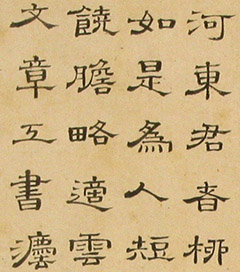 河東君者柳
如是為人短
饒膽略適雲
文章工書灋